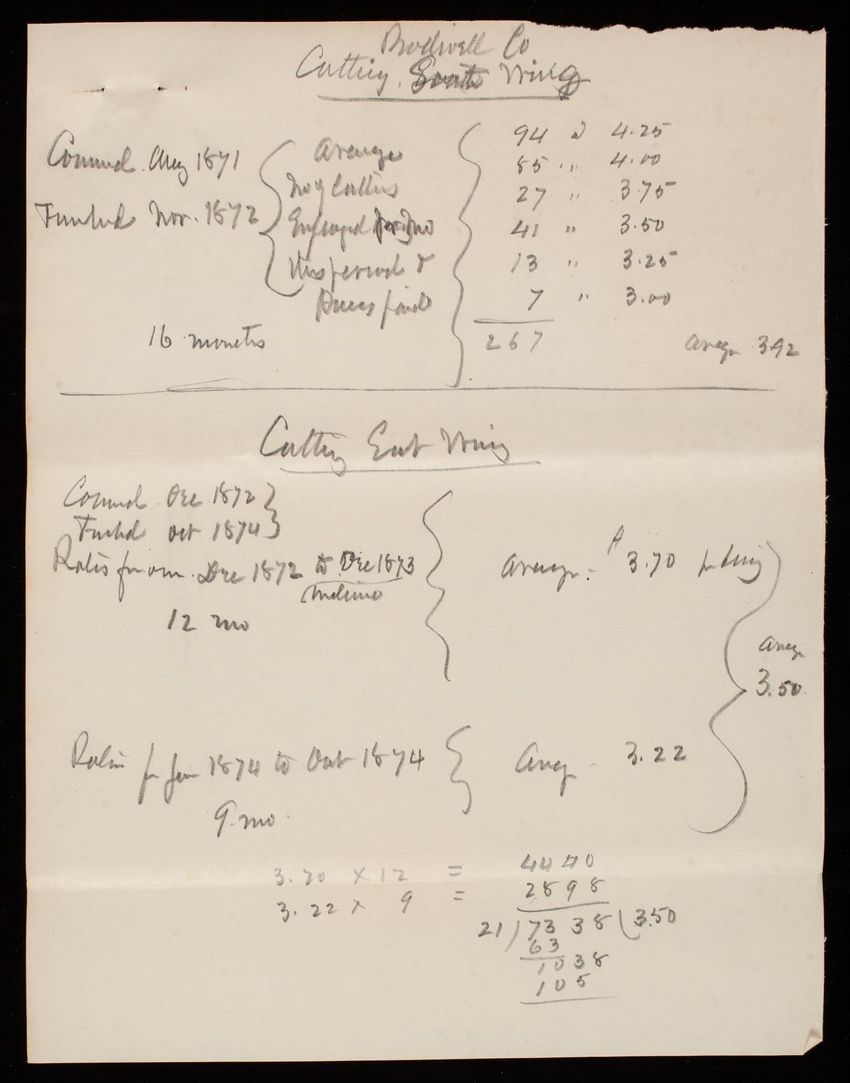 Bodwell Co
Cutting South Wing
Commcd. Aug 1871
Finished Nov. 1872
16 months
Average
No of Cutters
Employed per mo
this period &
Prices paid
94 @ 4.25
85 " 4.00
27 " 3.75
41 " 3.50
13 " 3.25
7 " 3.00
267 averg 3.92
Cutting East Wing
Commcd. Dec 1872
Finshd Oct 1874
Rates from Dec 1872 to Dec 1873
inclusive
12 mo
Average. 3.70 per day
averg
3.50
Rates for Jan 1874 to Oct 1874
9 mo.
Averg - 3.22
3.70 x 12 = 4440
3.22 x 9 = 2898
21 ) 7338 ( 3.50
63
1038
105